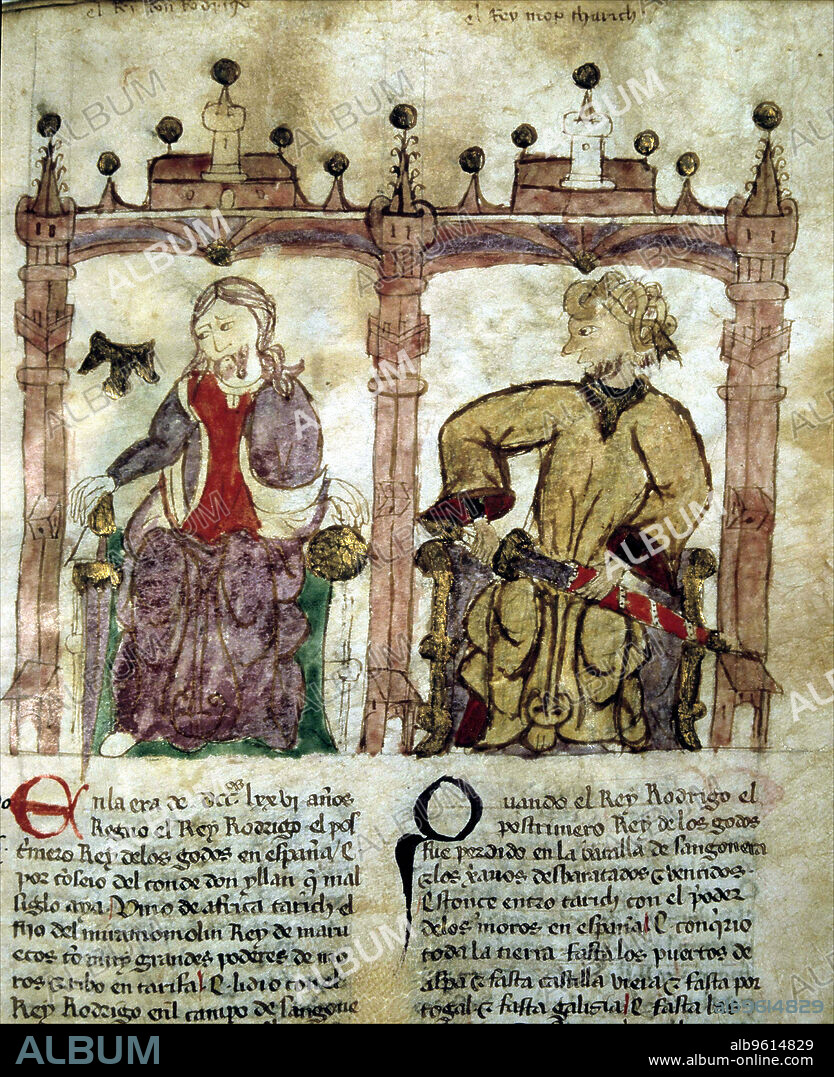 el Rey don Rodrigo
el Rey moro tharich
En la era de dcc lxxvi años
Regno el Rey Rodrigo el pos
t'mero Rey de los godos en españa / E
por cōseio del conde don yllan q̄ mal
siglo aya / Vino de africa tarich el
fijo del miramomolin Rey de marru
ecos cō muy grandes poderes de mo
ros & ribo en tarifa / E lidio con el
Rey Rodrigo en'l canpo de sangone
Quando el Rey Rodrigo el
postrimero Rey de los godos
fue perdido en la batalla de sangonera
& los xanos desbaratados & vencidos
Estonce entro tarich con el poder
de los moros en españa / E conq'rio
toda la tierra fasta los puertos de
aspa & fasta castilla vieja & fasta por
togal & fasta galisia / E fasta las
ALBUM
alb9614829
www.album-online.com